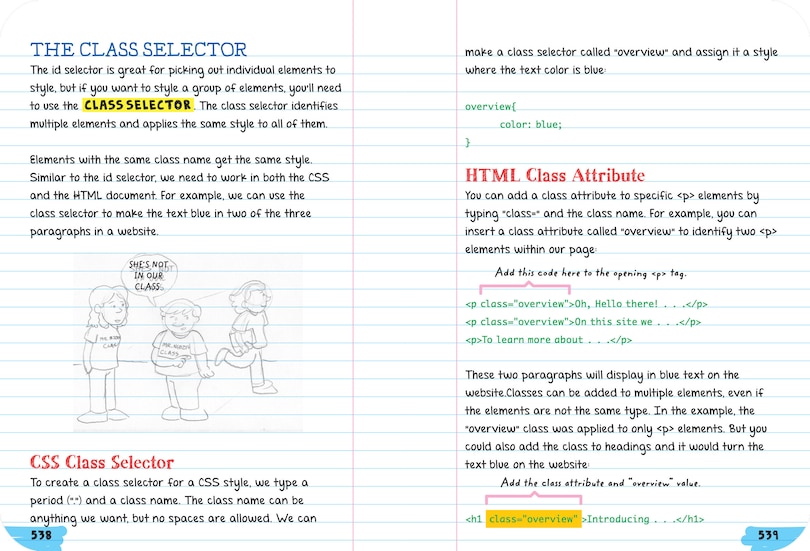 THE CLASS SELECTOR
The id selector is great for picking out individual elements to
style, but if you want to style a group of elements, you'll need
to use the CLASS SELECTOR. The class selector identifies
multiple elements and applies the same style to all of them.
Elements with the same class name get the same style.
Similar to the id selector, we need to work in both the CSS
and the HTML document. For example, we can use the
class selector to make the text blue in two of the three
paragraphs in a website.
SHE'S NOT
IN OUR
CLASS.
CLASS
CLASS
CSS Class Selector
To create a class selector for a CSS style, we type a
period (".") and a class name. The class name can be
anything we want, but no spaces are allowed. We can
538
make a class selector called "overview" and assign it a style
where the text color is blue:
overview{
color: blue;
}
HTML Class Attribute
You can add a class attribute to specific <p> elements by
typing "class=" and the class name. For example, you can
insert a class attribute called "overview" to identify two <p>
elements within our page:
Add this code here to the opening <p> tag.
<p class="overview">Oh, Hello there! . . .</p>
<p class="overview">On this site we . . .</p>
<p>To learn more about . . .</p>
These two paragraphs will display in blue text on the
website.Classes can be added to multiple elements, even if
the elements are not the same type. In the example, the
"overview" class was applied to only <p> elements. But you
could also add the class to headings and it would turn the
text blue on the website:
Add the class attribute and "overview" value.
<h1 class="overview" >Introducing . . .</h1>
539